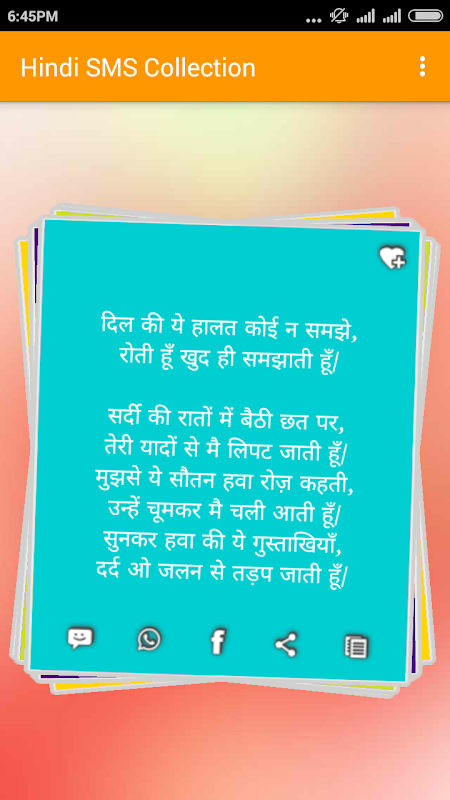 6:45PM
Hindi SMS Collection
दिल की ये हालत कोई न समझे,
रोती हूँ खुद ही समझाती हूँ/
सर्दी की रातों में बैठी छत पर,
तेरी यादों से मै लिपट जाती हूँ/
मुझसे ये सौतन हवा रोज़ कहती,
उन्हें चूमकर मै चली आती हूँ/
सुनकर हवा की ये गुस्ताखियाँ,
दर्द ओ जलन से तड़प जाती हूँ/